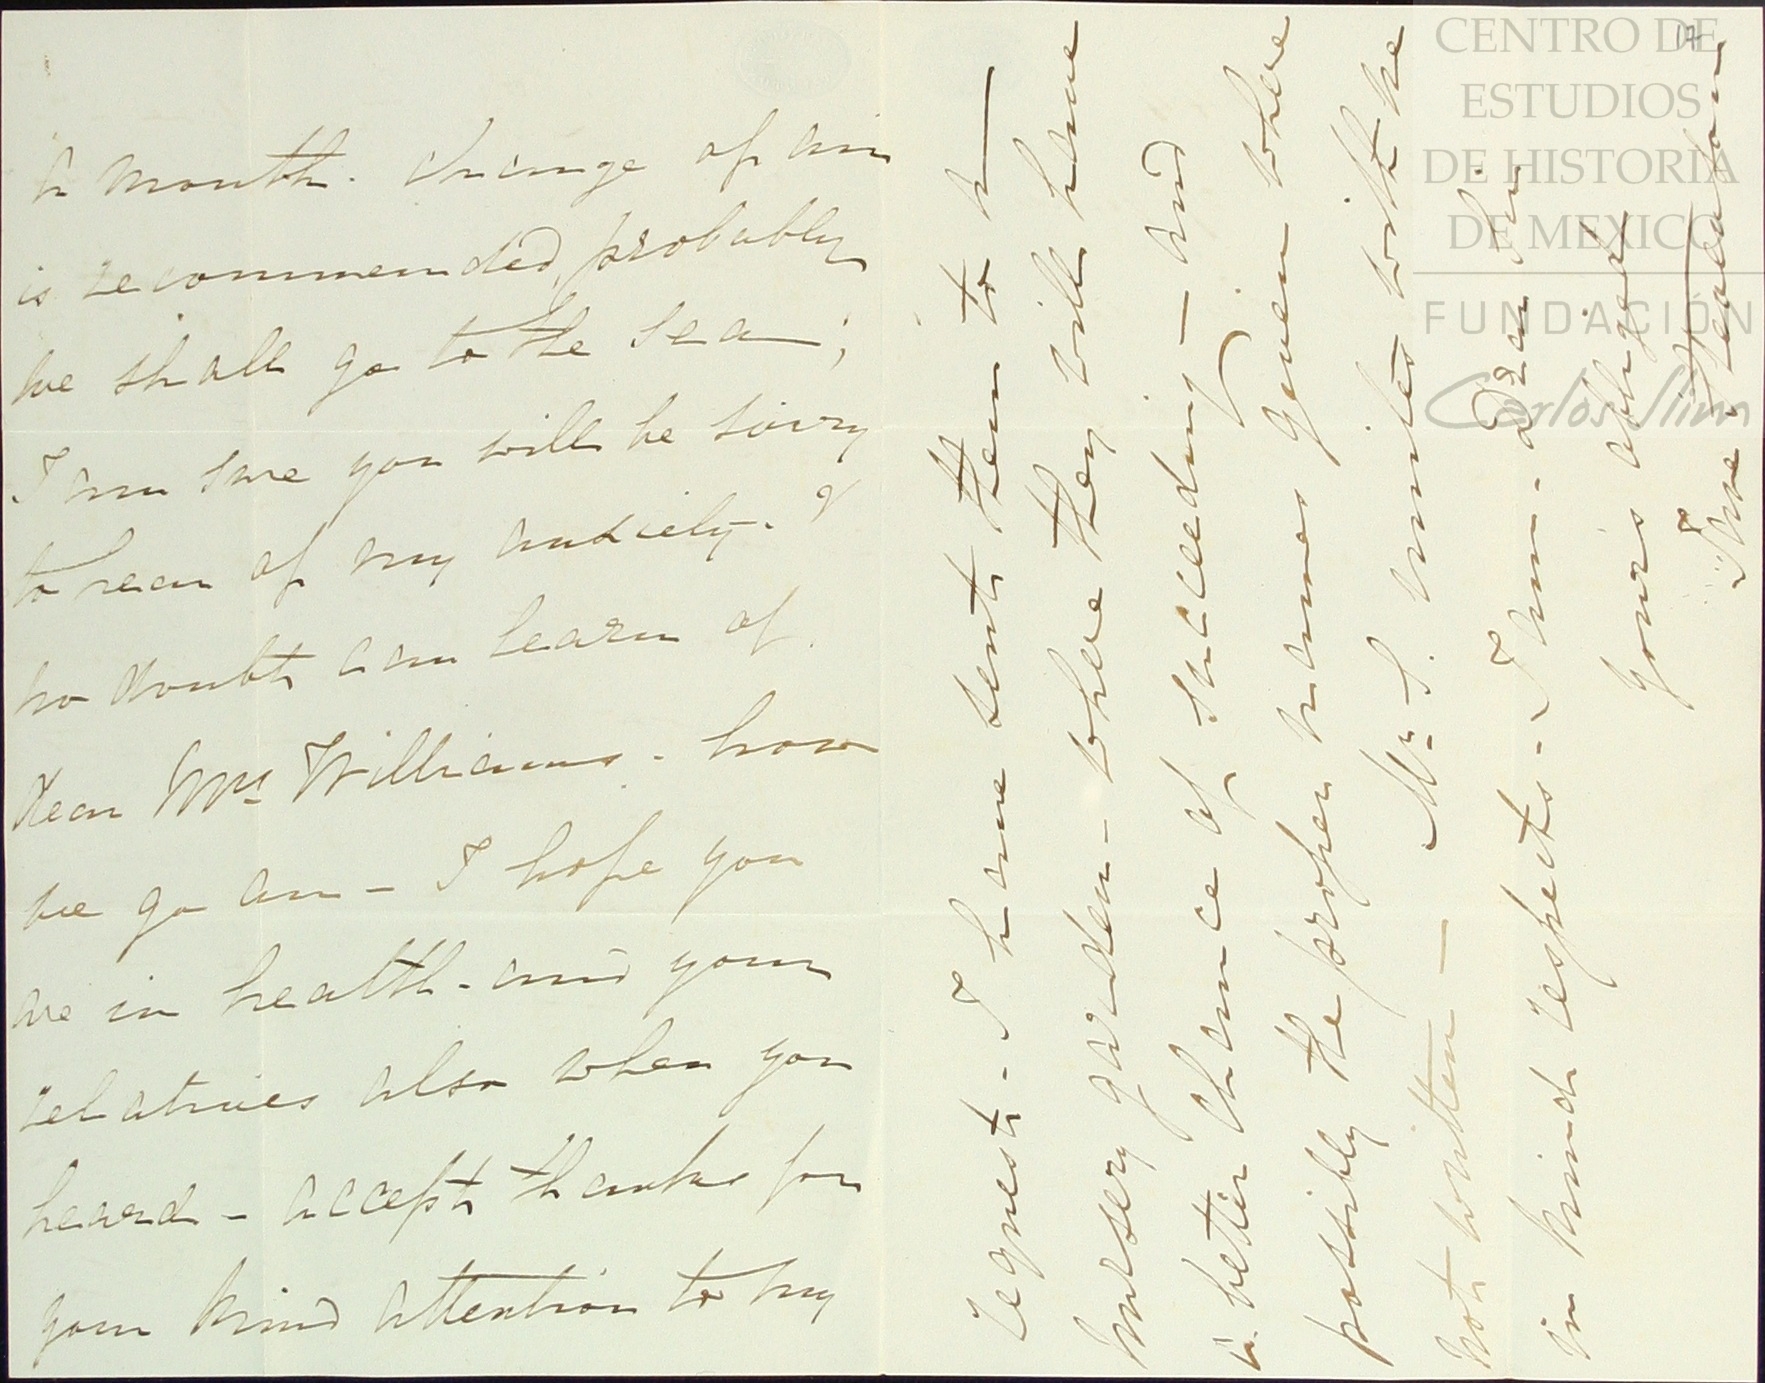 a month. Change of air
is recommended, probably
we shall go to the Sea;
I am sure you will be sorry
to hear of my anxiety. &
no doubt can learn of
dear Mrs Williams. how
we go on - I hope you
are in health. and your
relatives also when you
heard - accept thanks for
your kind attention to my
request. - I have sent them to a
nursery garden - where they will have
a better chance of succeeding - and
possibly the proper names given where
not written - Mr S. unites with me
in kind respects. - I am. dear Sir
yours obliged
CENTRO DE
ESTUDIOS
DE HISTORIA
DE MEXICO
FUNDACIÓN
Carlos Slim
17